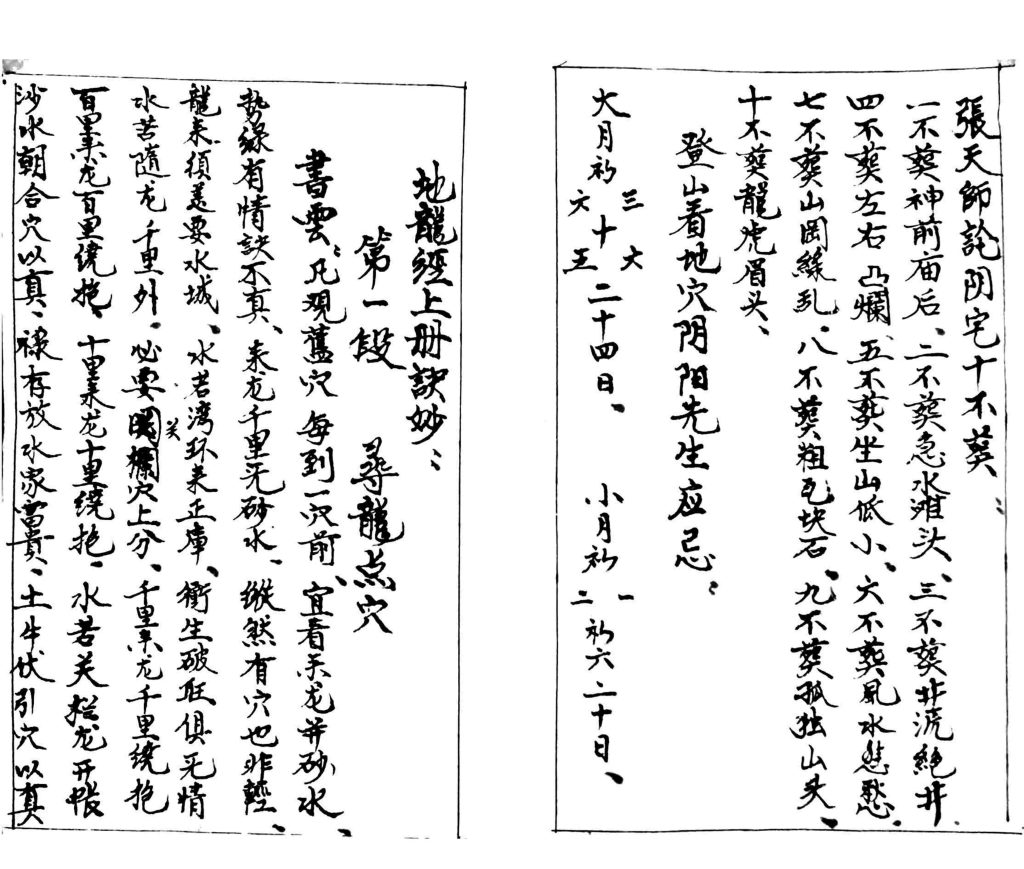 張天師訟阴宅十不葬：
一不葬神前庙后、二不葬急水滩头、三不葬非流絕井
四不葬左右凸爛、五不葬坐山低小、六不葬風水愁愁、
七不葬山岡繚乱、八不葬粗瓦块石、九不葬孤独山头、
十不葬龍虎眉头、
登山着地穴阴阳先生应忌：
大月初三六十六五二十四日、 小月初一二初六二十日、
地龍經上册訣妙：
第一段 尋龍点穴
書雲：凡观舊穴每到一穴前、宜看來龙并砂水、
勢繚有情訣不真、來龙千里无砂水、縱然有穴也非輕、
龍來須羡要水城、水若湾环来正庫、衝生破旺俱无情
水若隨龙千里外、必要関攔穴上分、千里來龙千里绕抱
百里來龙百里绕抱、十里來龙十里绕抱、水若关拦龙开帳
沙水朝合穴以真、禄存放水家富貴、土牛伏引穴以真